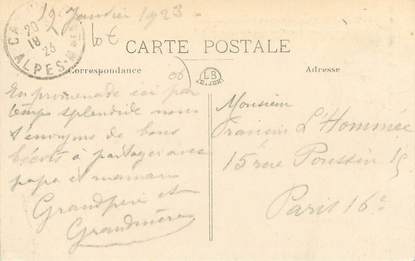 19 Janvier 1923
CARTE POSTALE
Correspondance
Adresse
LB
ALPES-M
En promenade ici par
temps splendide nous
t'envoyons de bons
baisers à partager avec
papa et maman
Grandpère et
Grandmère
Monsieur
Francis L'Hommée
15 rue Poussin 15
Paris 16e